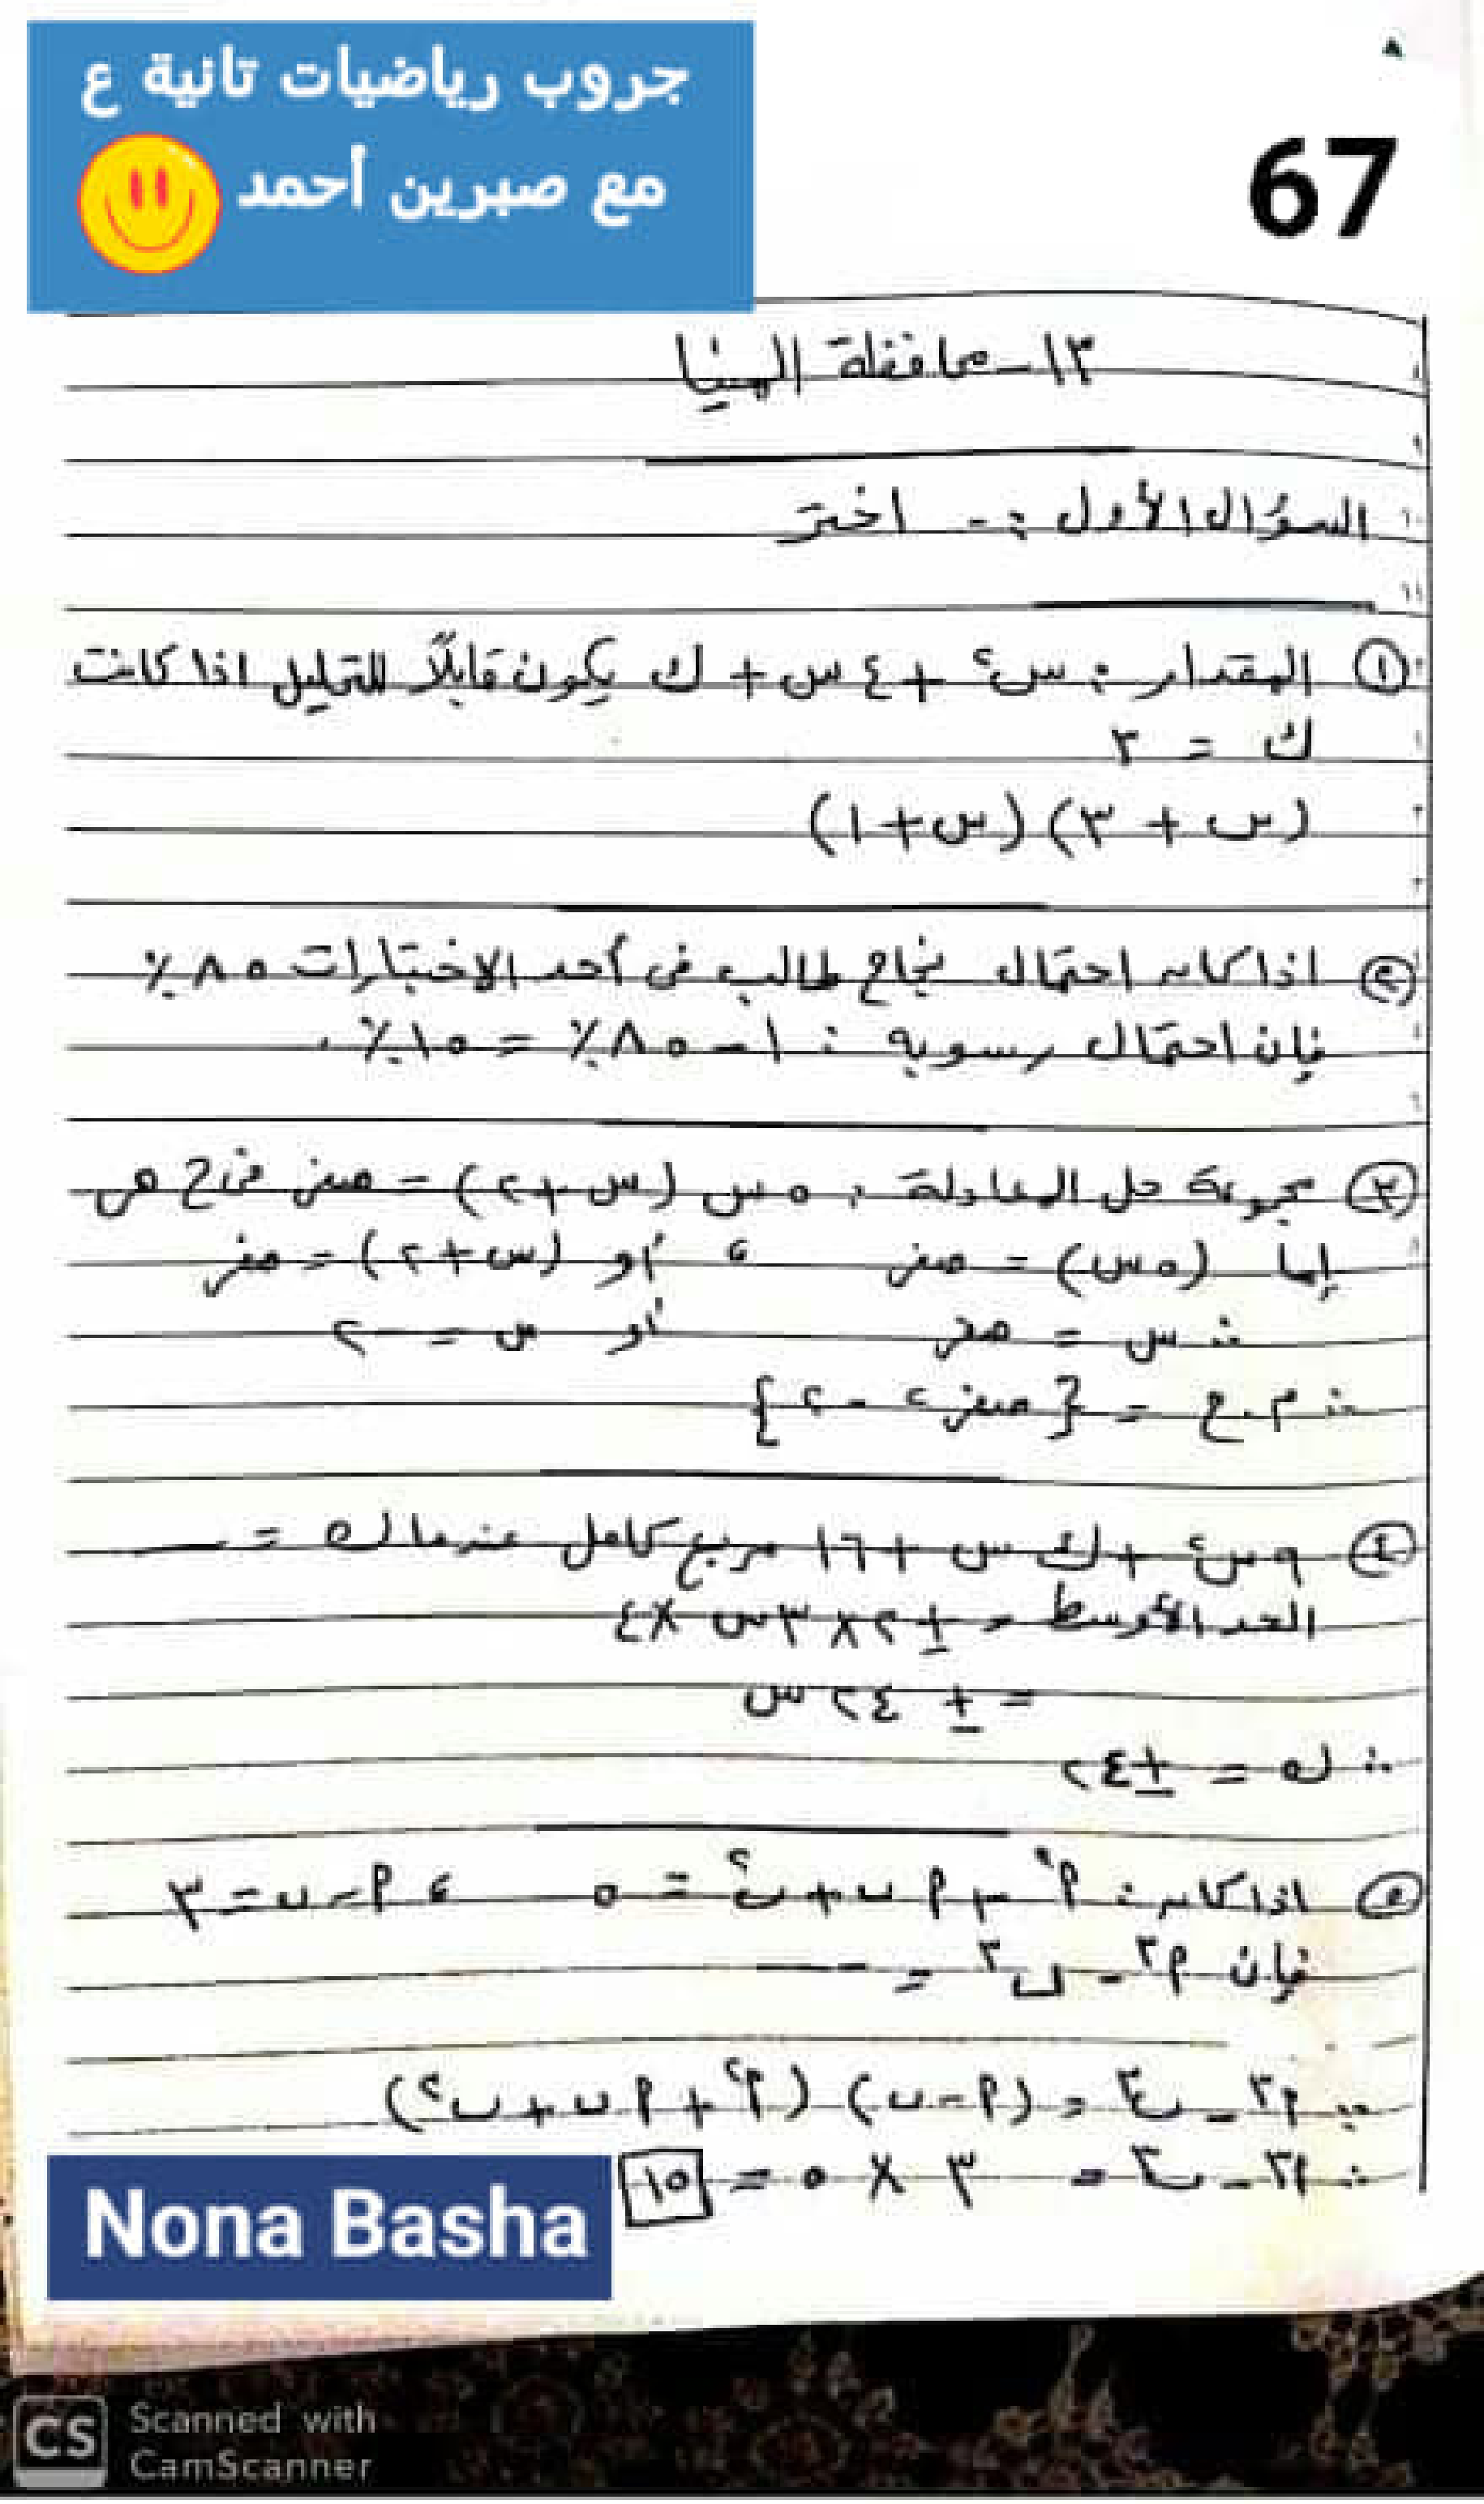 جروب رياضيات تانية ع
مع صبرين أحمد
67
١٣ - محافظة المنيا
السؤال الأول :- اختر
① المقدار : س٢ + ٤ س + ك يكون قابلاً للتحليل اذا كانت
ك = ٣
(س + ٣) (س + ١)
② اذا كان احتمال نجاح طالب فى أحد الاختبارات ٨٥٪
فإن احتمال رسوبه : ١ - ٨٥٪ = ١٥٪
③ مجموعة حل المعادلة : ٥ س (س + ٢) = صفر فى ح هى
إما (٥ س) = صفر ، أو (س + ٢) = صفر
∴ س = صفر أو س = -٢
∴ م.ح = {صفر ، -٢}
④ ٩ س٢ + ك س + ١٦ مربع كامل عندما ك = ــــ
الحد الأوسط = ± ٢ × ٣ س × ٤
= ± ٢٤ س
∴ ك = ± ٢٤
⑤ اذا كان : ٢أ + أ ب + ب٢ = ٥ ، أ - ب = ٣
فإن أ٣ - ب٣ = ــــ
∵ أ٣ - ب٣ = (أ - ب) (أ٢ + أ ب + ب٢)
∴ أ٣ - ب٣ = ٣ × ٥ = ١٥
Nona Basha
CS
Scanned with
CamScanner